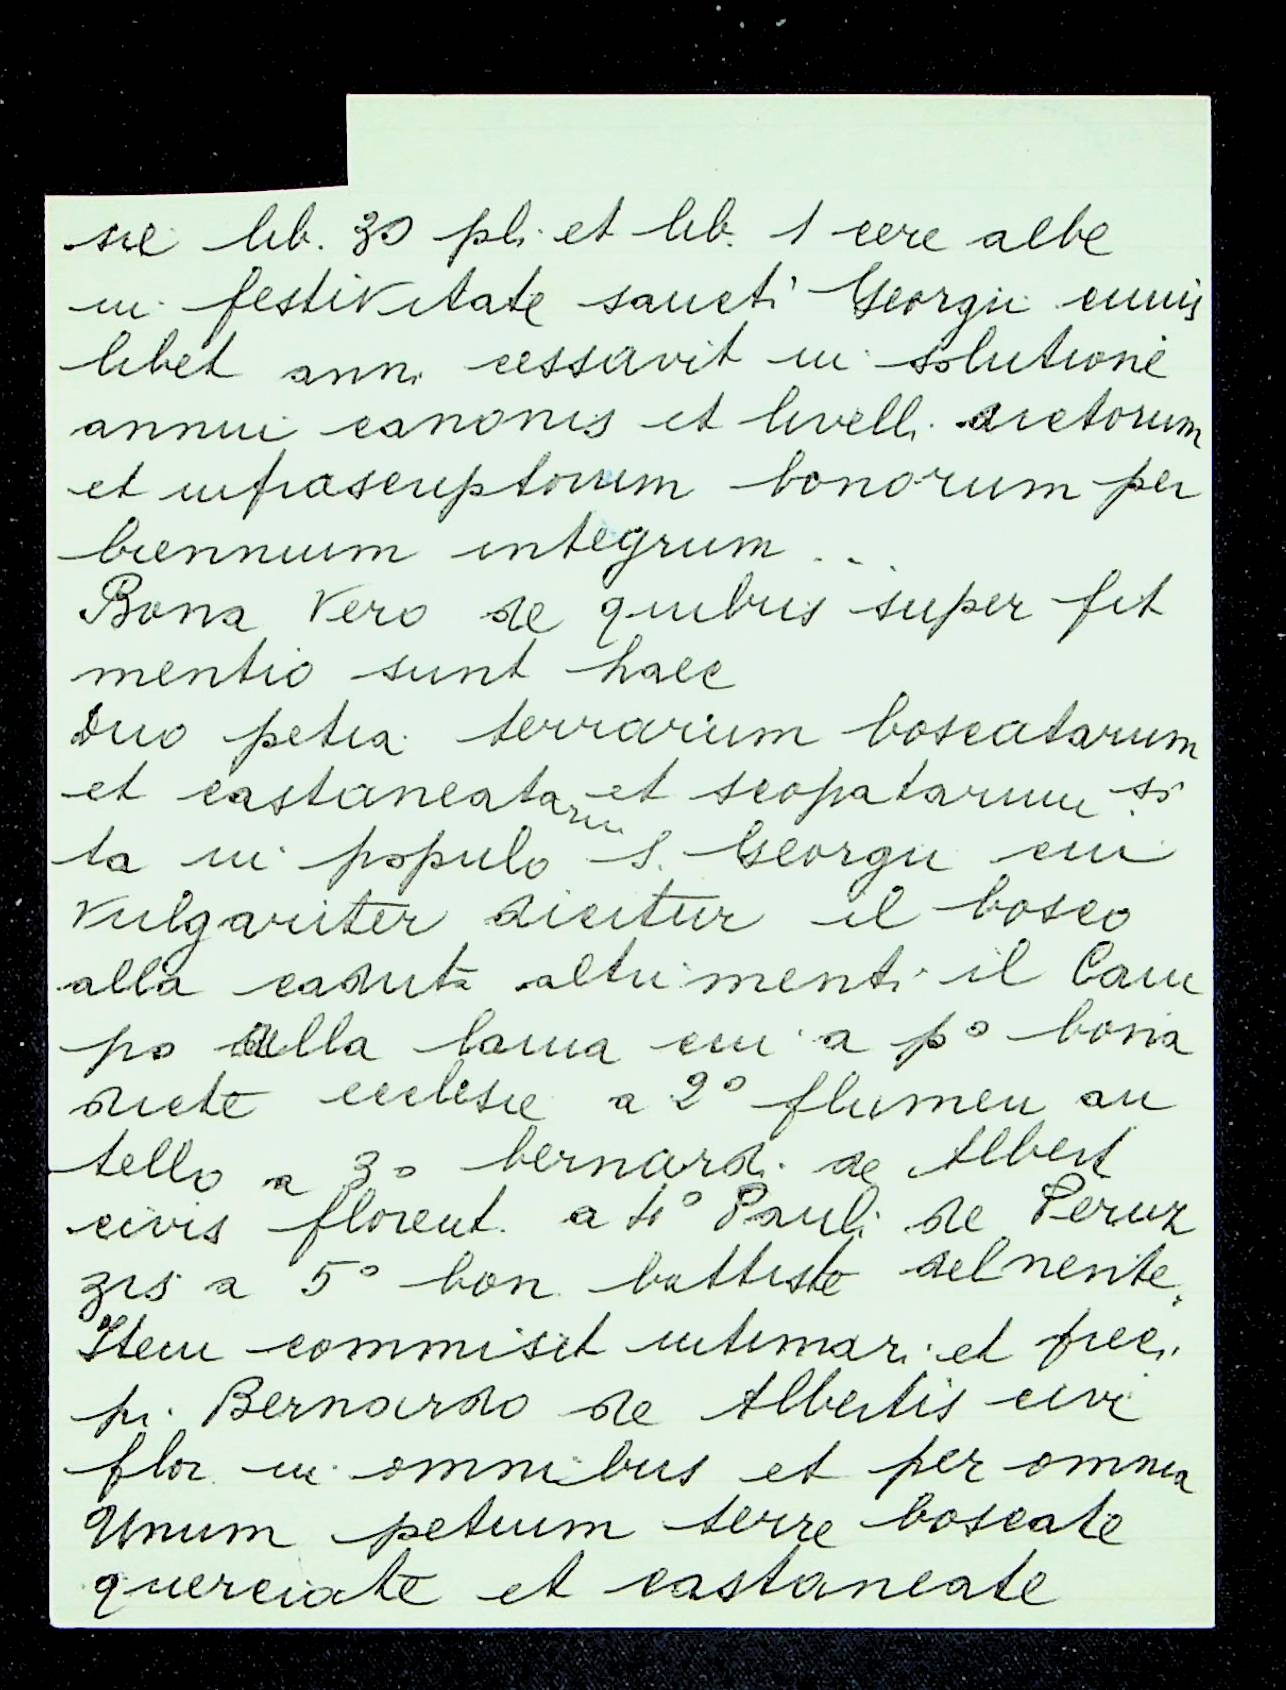 sie lib. 30 pli et lib. 1 cere albe
in festivitate sancti Georgii cuius
libet anni cessavit in solutione
annui canonis et livelli dictorum
et infrascriptorum bonorum per
biennium integrum ...
Bona vero de quibus super fit
mentio sunt haec
Duo petia terrarum boscatarum
et castaneatarum et scopatarum si
ta in populo S. Georgii cui
vulgariter dicitur il bosco
alla caduta altrimenti il Cam
po della lama cui a pº bona
dicte ecclesie a 2º flumen an
tello a 3º bernardi de Albert
civis florent. a 4º Pauli de Peruz
zis a 5º bon battiste del nente.
Item commisit intimari et preci
pi Bernardo de Albertis civi
flor in omnibus et per omnia
Unum petium terre boscate
querciate et castaneate